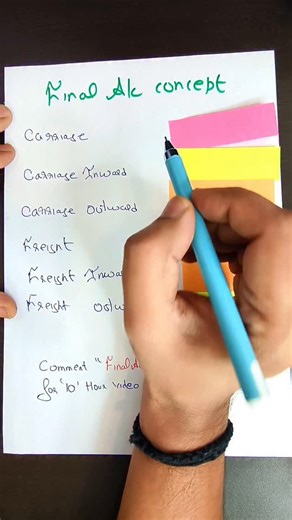 Final A/c concept
Carriage
Carriage Inward
Carriage Outward
Freight
Freight Inwa
Freight Outw
Comment "Final A
for "10" Hour Video